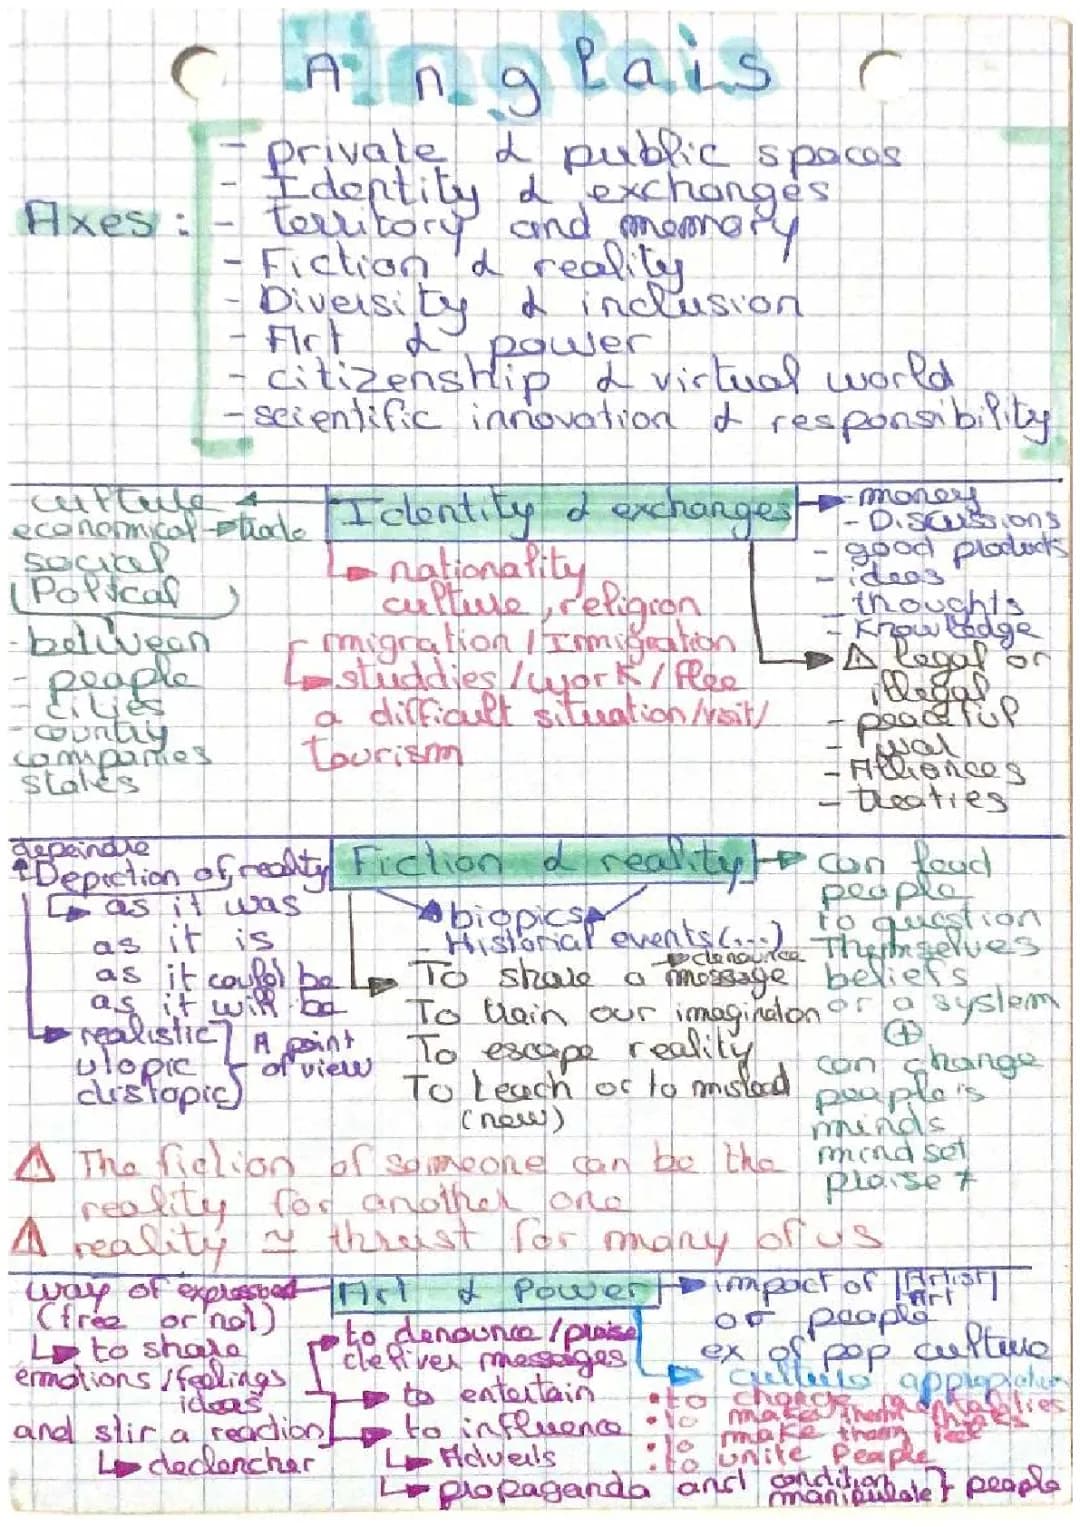 Anglais
Axes :
- private & public spaces
- Identity & exchanges
- territory and memory
- Fiction & reality
- Diversity & inclusion
- Art & power
- citizenship & virtual world
- scientific innovation & responsibility
Identity & exchanges
culture
economical → trade
social
(Poltcal)
- between
- people
- cities
- country
companies
states
nationality
culture, religion
migration / Immigration
studdies / work / flee
a difficult situation / visit /
tourism
- money
- Discussions
- good products
- ideas
- thoughts
- Knowledge
⚠ legal or
illegal
- peaceful
- war
- Alliances
- treaties
Fiction & reality
depeindre
Depiction of reality
as it was
as it is
as it could be
as it will be
realistic
utopic
distopic
A point
of view
biopics
- Historial events (...)
denounce
To share a message
To train our imaginaton
To escape reality
To teach or to mislead
(new)
can lead
people
to question
Themselves
beliefs
or a system
⊕
can change
people's
minds
mind set
praise ≠
⚠ The fiction of someone can be the
reality for another one
⚠ reality ≃ thrust for many of us
Art & Power
way of expressed
(free or not)
to share
emotions / feelings
ideas
and stir a reaction
declencher
to denounce / praise
deliver messages
to entertain
to influence
Adverts
propaganda and condition manipulate } people
impact of Artist
Art
or people
ex of pop culture
culture appropiation
• to change mentalities
• to make them
• to make them feel
• to unite People